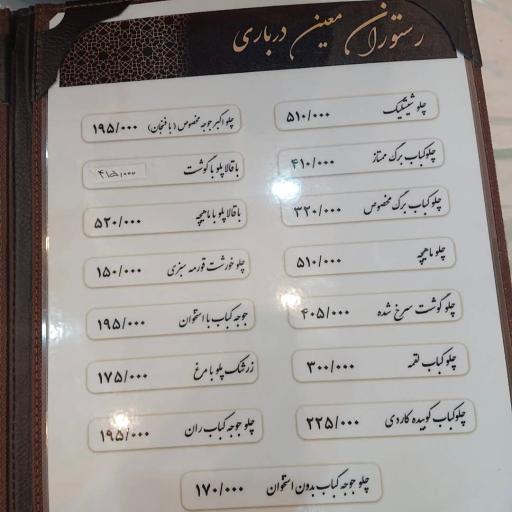 رستوران معین درباری
چلو شیشلیک ۵۱۰/۰۰۰
چلوکباب برگ ممتاز ۴۱۰/۰۰۰
چلوکباب برگ مخصوص ۳۲۰/۰۰۰
چلو ماهیچه ۵۱۰/۰۰۰
چلو گوشت سرخ شده ۴۰۵/۰۰۰
چلو کباب لقمه ۳۰۰/۰۰۰
چلوکباب کوبیده کاردی ۲۲۵/۰۰۰
چلو اکبر جوجه مخصوص (با فنجان) ۱۹۵/۰۰۰
باقالا پلو با گوشت
باقالا پلو با ماهیچه ۵۲۰/۰۰۰
چلو خورشت قورمه سبزی ۱۵۰/۰۰۰
جوجه کباب با استخوان ۱۹۵/۰۰۰
زرشک پلو با مرغ ۱۷۵/۰۰۰
چلو جوجه کباب ران ۱۹۵/۰۰۰
چلو جوجه کباب بدون استخوان ۱۷۰/۰۰۰